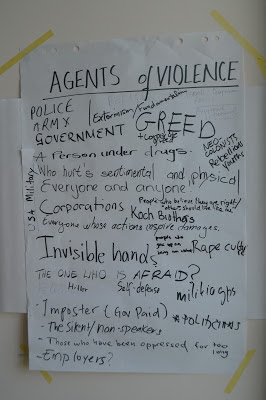 AGENTS of VIOLENCE
POLICE
ARMY
Extremism/Fundamentalism
GOVERNMENT
GREED
A Person under drugs.
Who hurt's sentimental and physical
Everyone and anyone.
NEOCONS
COLONISTS
Rebellion
USA Military
Corporations,
People who believe they are right/
others should like like me
Koch Brothers
Everyone whose actions inspire damages.
Invisible hand?
people who
Rape cult
THE ONE WHO IS AFRAID?
Hitler
Self-defense
militia
- Imposter (Gov Paid)
* POLITICIANS
- The silent/non-speakers
- Those who have been oppressed for too
long
- Employers?